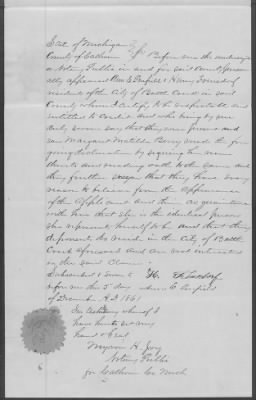 State of Michigan
County of Calhoun } SS Before me the undersigned
a Notary Public in and for said County person
ally appeared Wm E Penfield & Henry
resident of the City of Battle Creek in said
County whom I certify to be respectable and
entitled to Credit and who being by me
duly sworn say that they were present and
saw Margaret Matilda Berry sign the fore
going declaration by making her mark
thereto and
they further swear that they have every
reason to believe from the appearance
of the applicant and their acquaintance
with her that she is the identical person
she represents herself to be and that they
deponents reside in the City of Battle
Creek aforesaid and are not interested
in the said Claim
Subscribed & sworn to
before me this 5 day
of December A.D. 1861
In testimony whereof I
have hereunto set my
hand & Seal
Myron H. Joy
Notary Public
for Calhoun Co Mich